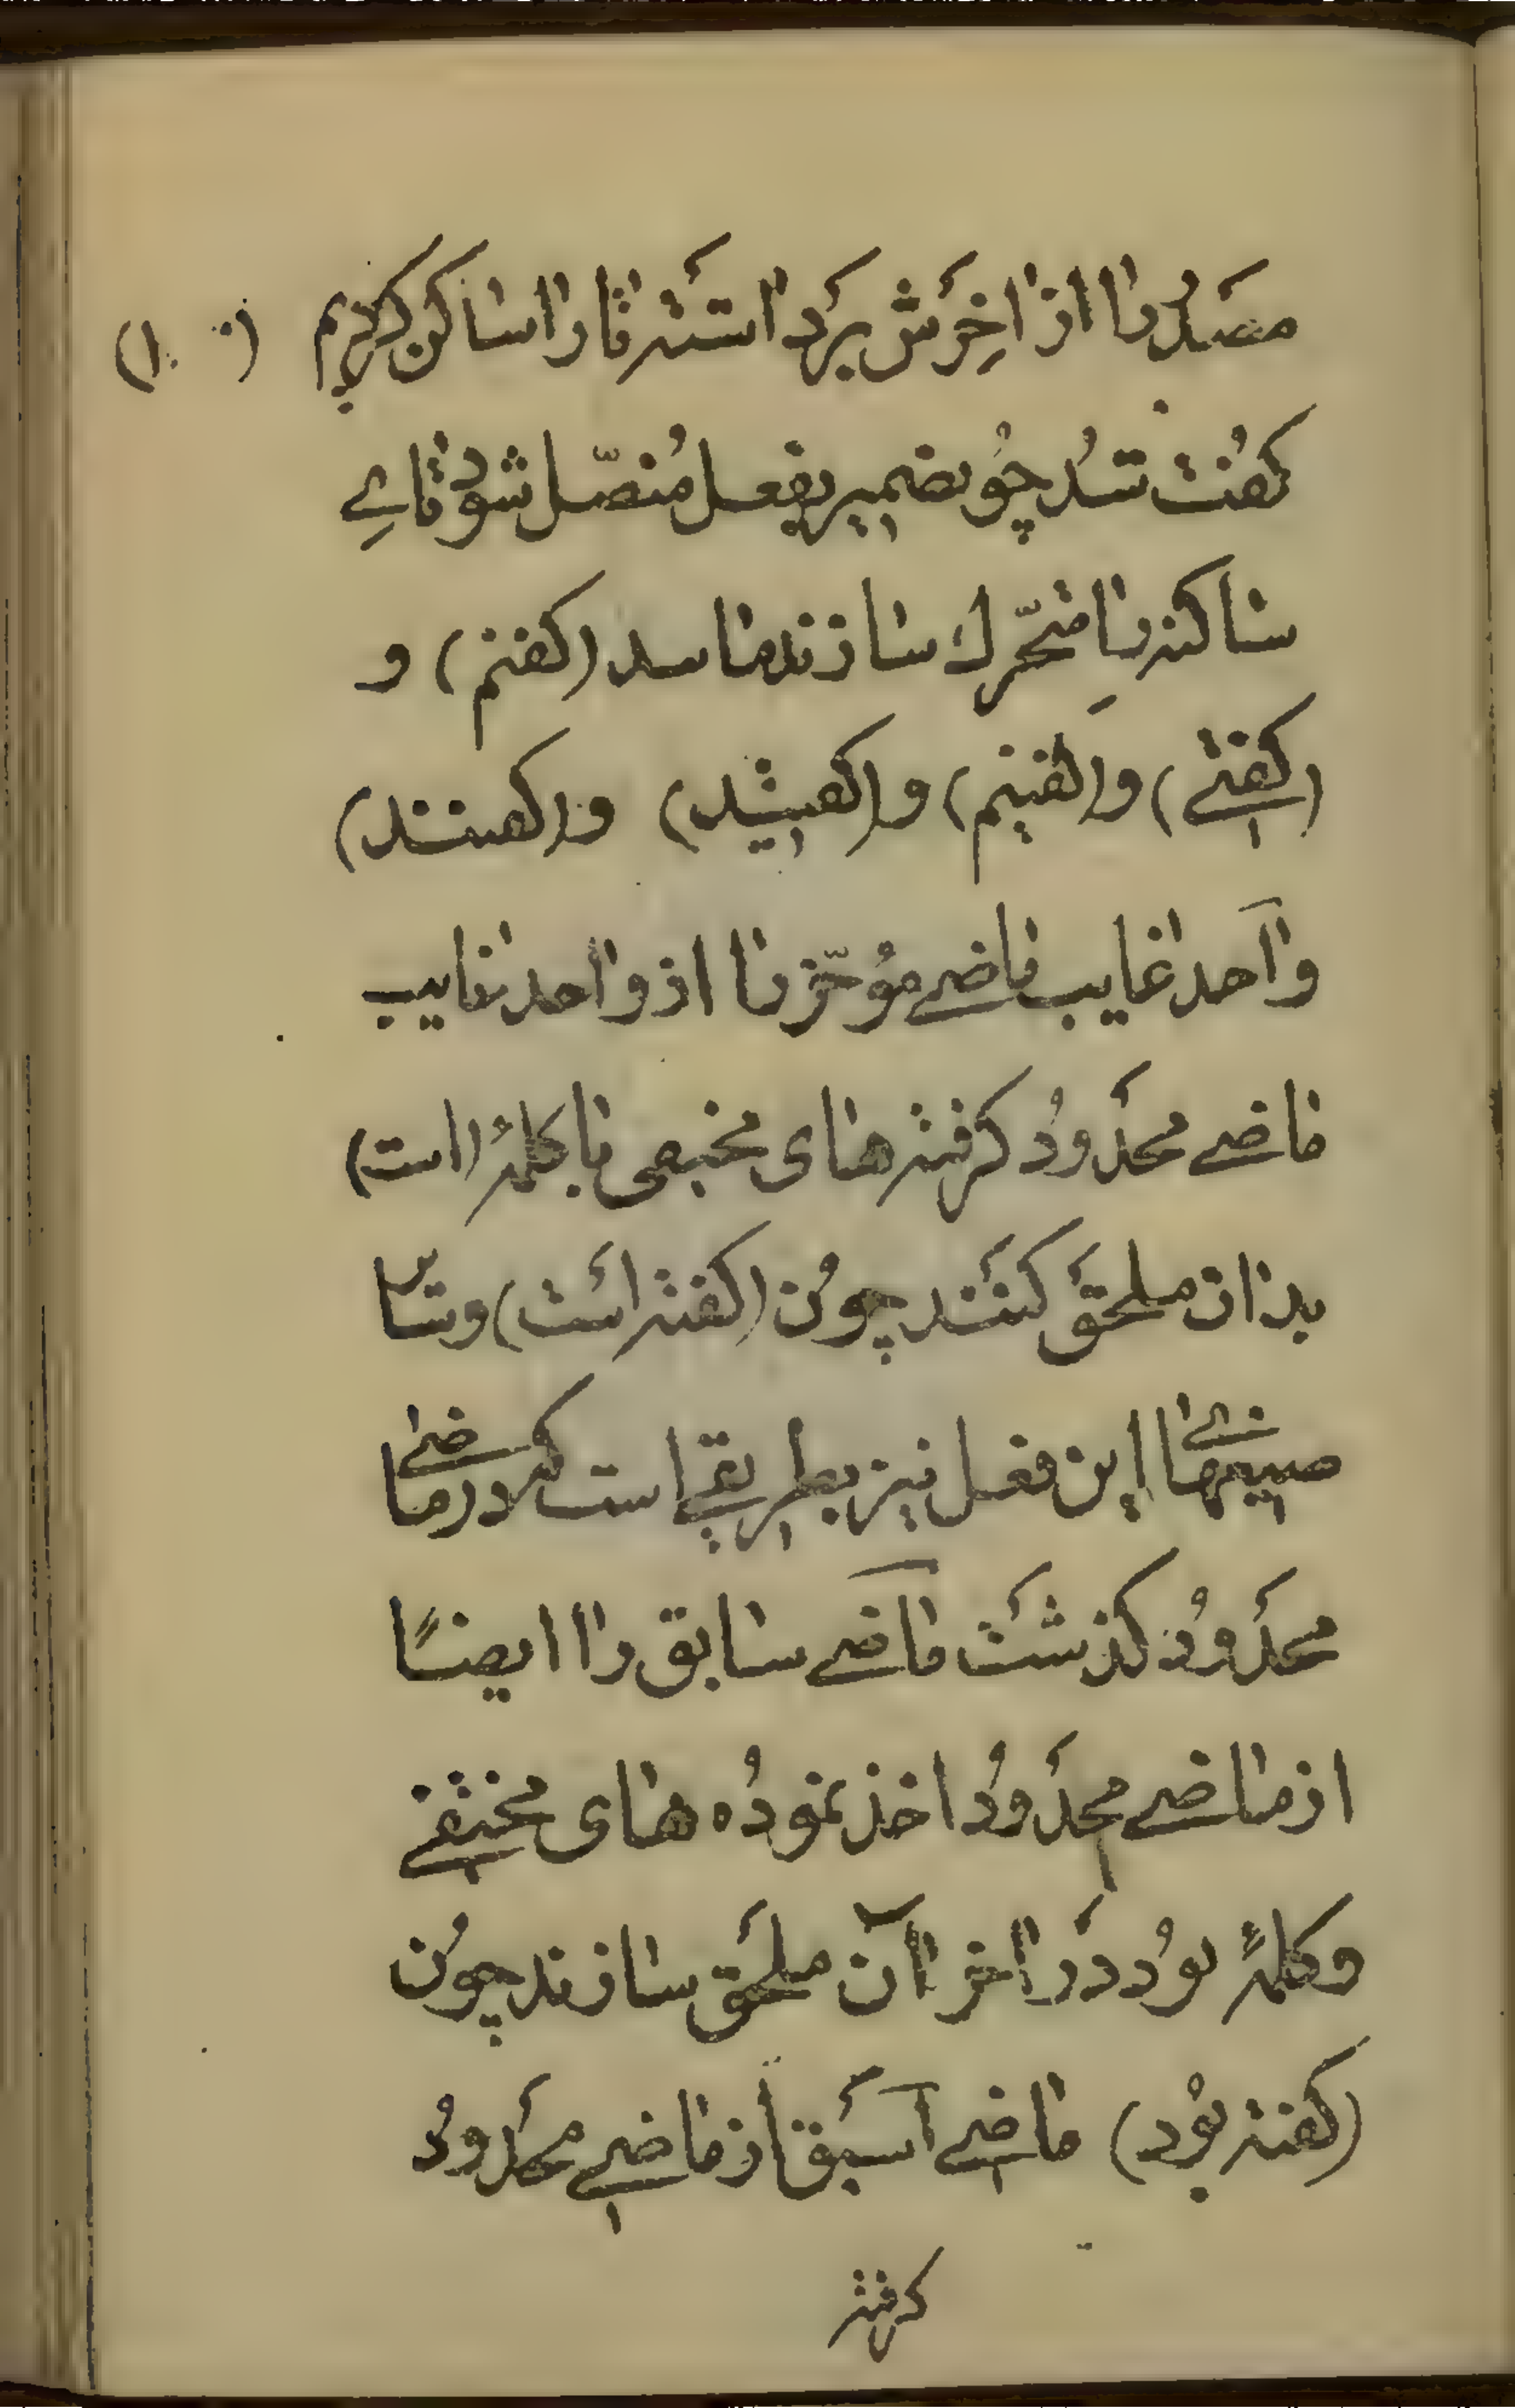 مصدر را از اخِرَش بَرداشته تا را ساکن کردیم (۱۰)
کفُت شُد چُو ضمیر بفعل مُتصّل شود تایِ
ساکنه را متحّرِك سازند مانند (کفتم) و
(کفتی) و(کفتیم) و(کفتید) و(کفتند)
واحد غایب ماضی مؤخّر را از واحد غایب
ماضی محَدودُ کرفته های مختفی با کلمهٔ (است)
بدان ملحَق کنَند چوُن (کفته اَست) و سایر
صیغهای این فعل نیز بطریقی است که در ماضی
محَدودُ کذشَت ماضی سابق را ایضاً
از ماضی محَدودُ اخذ نموُده های مختفی
و کلمهٔ بوُد دَر آخر آن ملحَق سازند چوُن
(کفته بوُد) ماضی اَسبَق از ماضی محَدودُ
کرفته